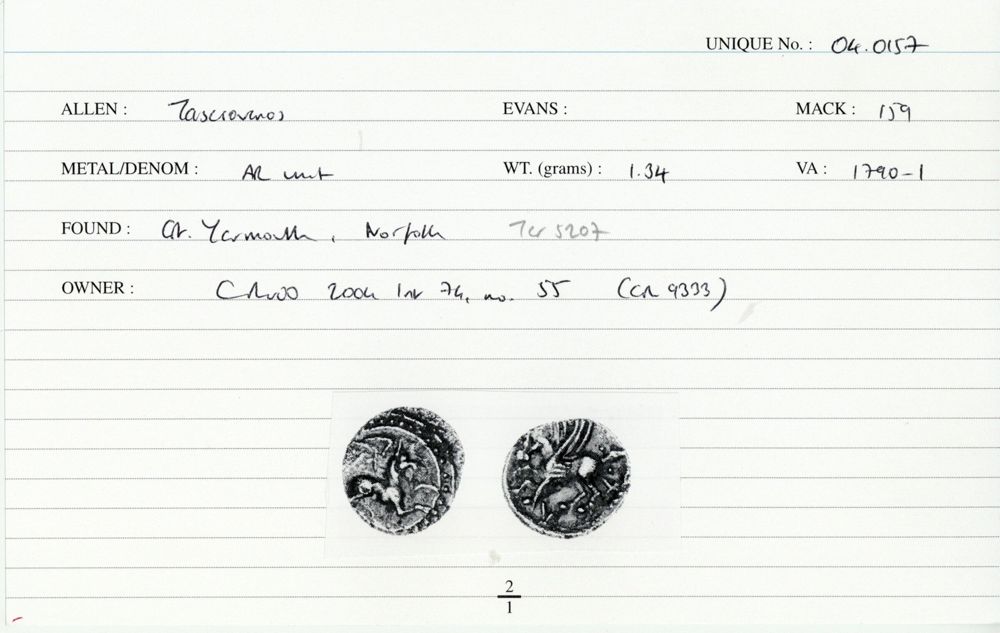 UNIQUE No. : 04.0157
ALLEN : Tasciovanos EVANS : MACK : 159
METAL/DENOM : AR unit WT. (grams) : 1.34 VA : 1790-1
FOUND : Gt. Yarmouth, Norfolk Tar 5207
OWNER : 2004 74, no. 55 (CR 9333)
2
1